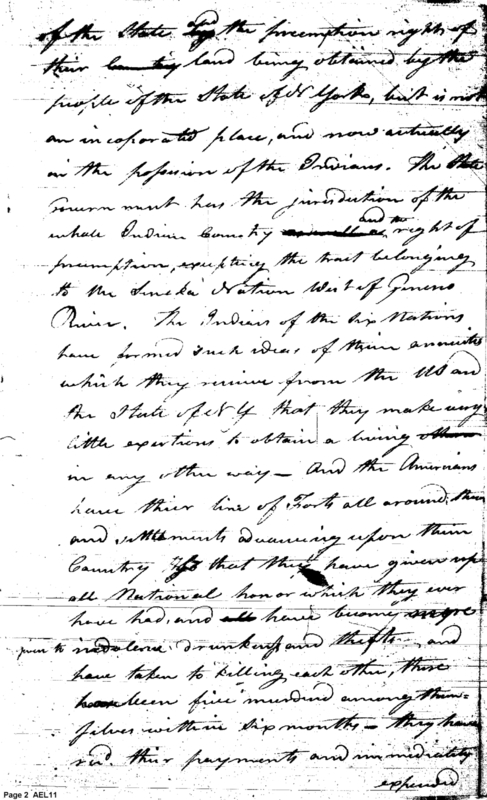 of the State and by the preemption rights of
thier country land being obtained by the
people of the State of N York, but is not
an incoporated place, and now actually
in the possession of the Indians. The State
Government has the jurisdiction of the
whole Indian Country as well as and no right of
preemption, excepting the tract belonging
to the Seneka Nation West of Genens
River. The Indians of the Six Nations
have formed such ideas of their annuities
which they receive from the US and
the State of NY that they make very
little exertions to obtain a living
in any other way — And the Americans
have thier line of Forts all around them
and settlements advancing upon them
Country so that they have given up
all National honor which they ever
have had, and all have become more
prone to indolence, drunkeness and thefts and
have taken to killing each other, there
been five murdered among them-
selves within six months — they have
recd. thier payments and immediately
expended
Page 2 AEL11